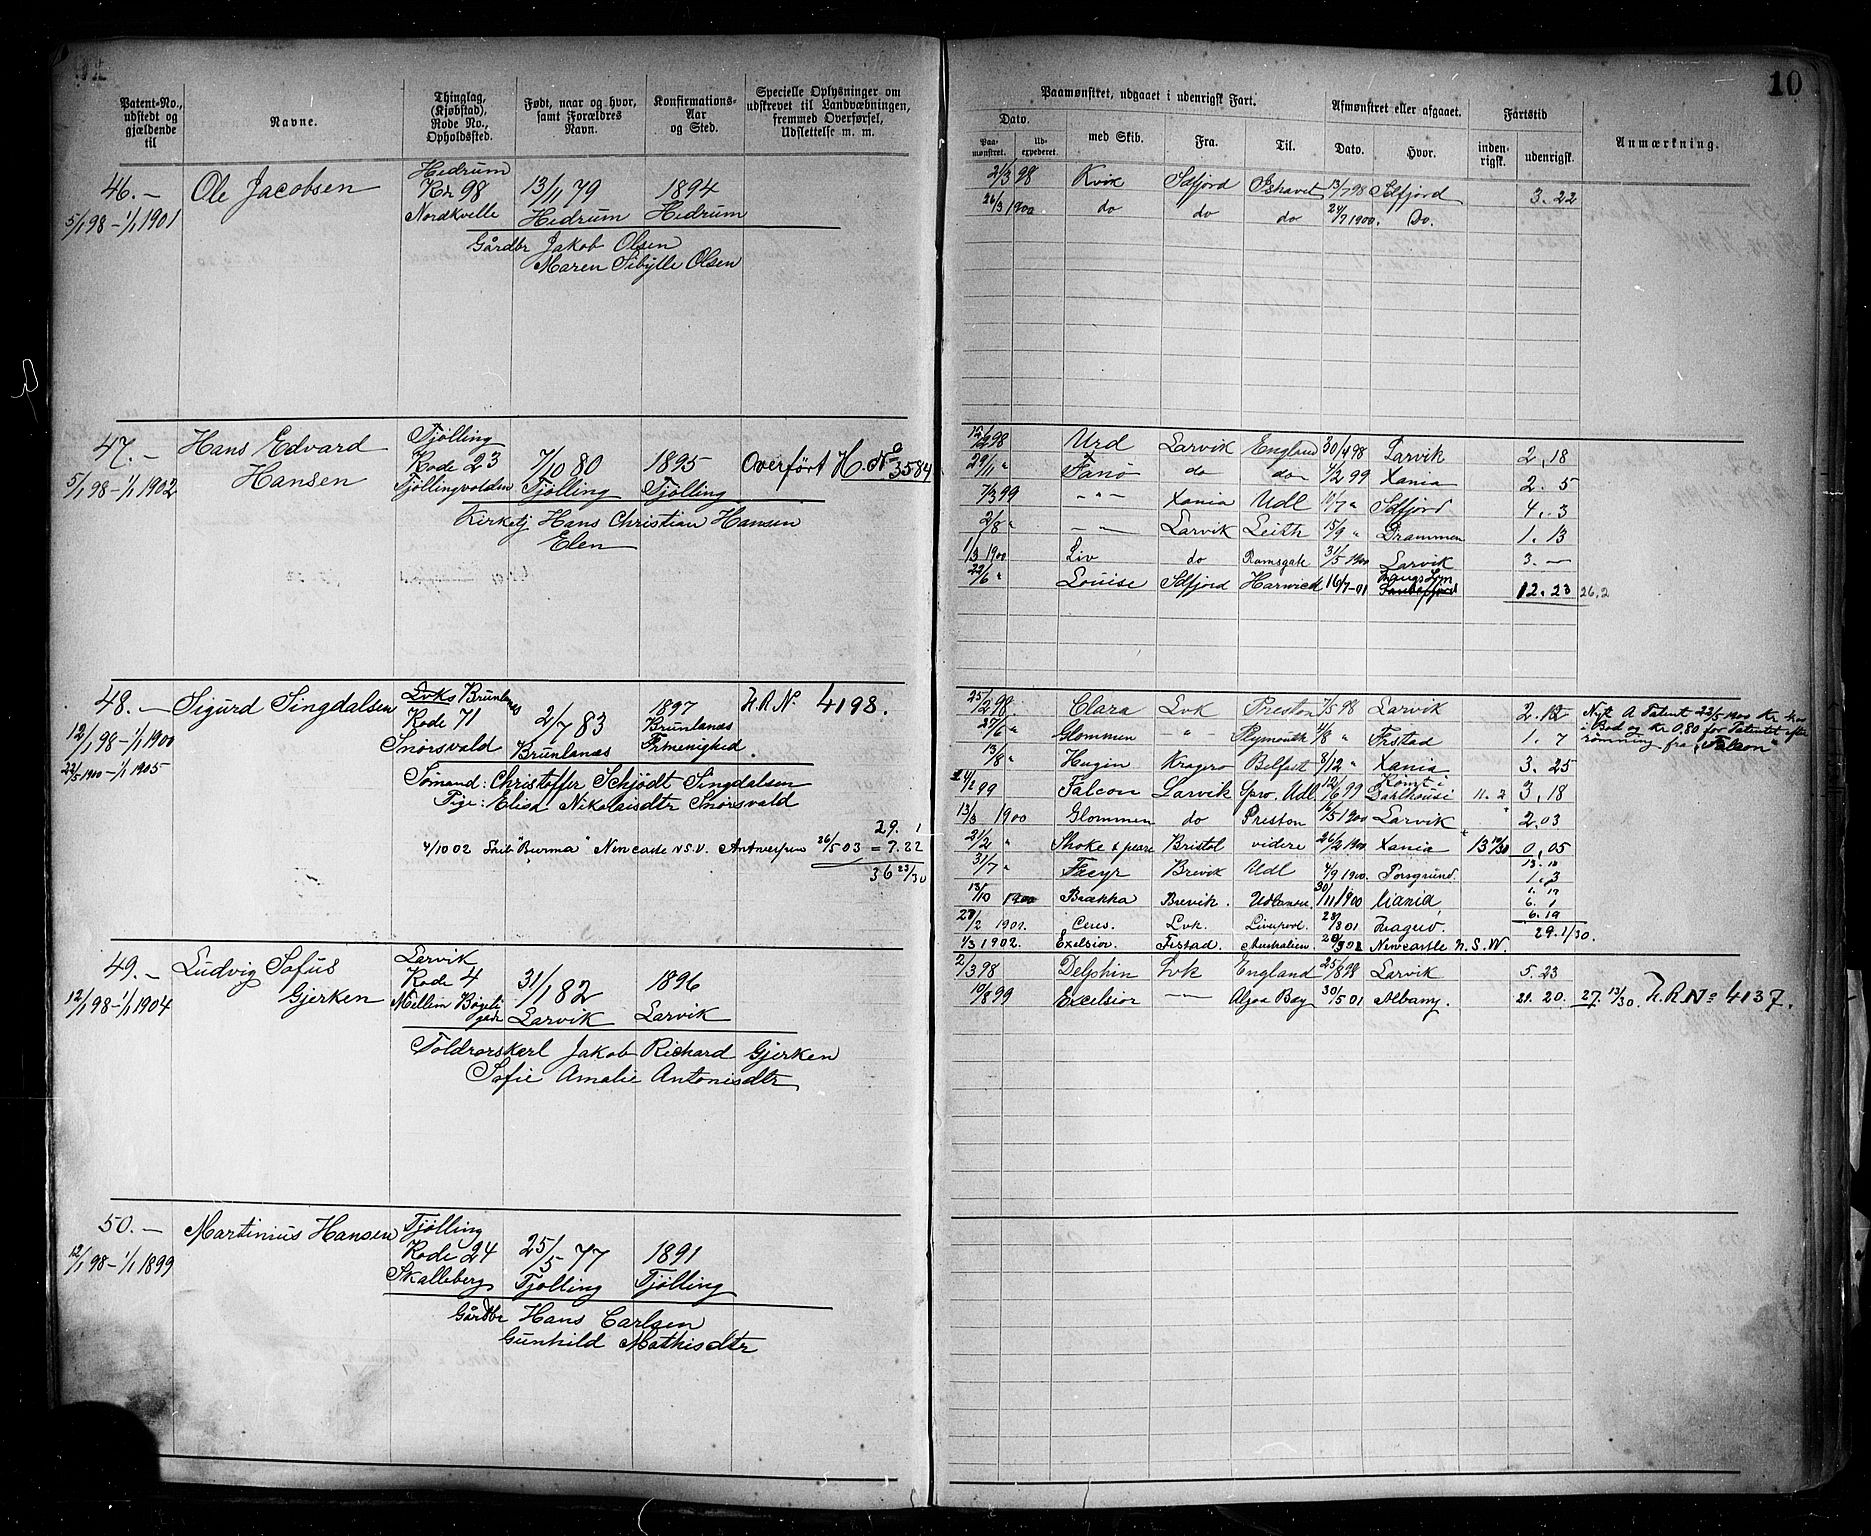 10
Patent-No., udstedt og gjældende til
Navne.
Thinglag, (Kjøbstad), Rode No., Opholdssted.
Født, naar og hvor, samt Forældres Navn.
Konfirmations-Aar og Sted.
Specielle Oplysninger om udskrevet til Landværbningen, fremmed Overførsel, Udslettelse m. m.
Paamønstret, udgaaet i udenrigsk Fart.
Afmønstret eller afgaaet.
Fartstid
Anmærkning.
Dato.
Paa-mønstret.
Ud-expederet.
med Skib.
Fra.
Til.
Dato.
Hvor.
inden-rigsk.
udenrigsk.
46. —
5/1 98 - 1/1 1901
Ole Jacobsen
Hedrum
Rd. 98
Nordkvelle
13/11 79
Hedrum
1894
Hedrum
Gårdbr Jakob Olsen
Maren Sibylle Olsen
2/3 98 Kvik Sdfjord Ishavet 13/7 98 Sdfjord 3. 22
26/3 1900 do do do 24/7 1900. Do.
47. —
5/1 98 - 1/1 1902
Hans Edvard
Hansen
Tjølling
Rode 23
Tjøllingvolden
7/10 80
Tjølling
1895
Tjølling
Overført H. No 3584
Kirketj Hans Christian Hansen
Elen
12/2 98 Urd Larvik England 30/4 98 Larvik 2, 18
29/11 " Fanø do do 4/2 99 Xania 2. 5
7/3 99 — " — Xania Udl 10/7 " Sdfjord 4. 3
2/8 " — " — Larvik Leith 15/9 " Drammen 1. 13
1/3 1900 Liv do Ramsgate 31/5 1900 Larvik 3. —
22/6 " Louise Sdfjord Harwich 16/7-01 Langesum Sandefjord 12. 23 26.2
48. —
12/1 98 - 1/1 1900
22/5 1900 - 1/1 1905
Sigurd Singdalsen
Lvks Brunlanes
Rode 71
Snørsvald
2/7 83
Brunlanes
1897
Brunlanes
Frmenighed
H.R.No 4198.
Sømand: Christoffer Schjødt Singdalsen
Pige: Elisa Nikolaisdtr Snørsvald
29. 1
4/10 02 Skib "Burma" Newcastle N.S.V. Antwerpen 26/5 03 = 7. 22
36 23/30
25/2 98 Clara Lvk Preston 7/5 98 Larvik 2. 12
27/6 " Glommen — " — Plymouth 11/8 " Frstad 1. 7
13/8 " Hugin Kragerø Belfast 8/12 " Xania 3. 25
24/2 99 Falcon Larvik Gpro. Udl. 12/6 99 Rømt Dahlhousi 11. 2 3, 18
13/3 1900 Glommen do Preston 16/5 1900 Larvik 2. 03
21/2 " Shoke & peare Bristol videre 26/2 1900 Xania 13 12/30 0, 05
31/7 " Facyr Brevik Udl 4/9 1900 Porsgrund 1. 3
13/10 1900 Brækka Brevik. Udlandet 30/11 1900 Xania
27/2 1901. Ceres. Lvk. Liverpool. 28/8 01 Kragerø. 6. 19
29. 1/30.
1/3 1902. Excelsior. Frstad. Australien 20/9 02 Newcastle N. S. W.
Nyt A Patent 22/5 1900 Kr
i Bod og Kr 0,80 for Patentet efter
rømning fra "Falcon"
49. —
12/1 98 - 1/1 1904
Ludvig Sofus
Gjerken
Larvik
Rode 4
Mellem Bøgeli
gade
31/1 82
Larvik
1896
Larvik
Toldrorskarl Jakob Richard Gjerken
Sofie Amalie Antonisdtr
2/3 98 Delphin Lvk England 25/8 98 Larvik 5. 23
10/8 99 Excelsior — " — Algoa Bay 30/5 01 Albany. 21. 20. 27. 13/30. H.R.No 4137.
50. —
12/1 98 - 1/1 1899
Martinius Hansen
Tjølling
Rode 24
Skalleberg
25/5 77
Tjølling
1891
Tjølling
Gårdbr Hans Carlsen
Gunhild Mathisdtr